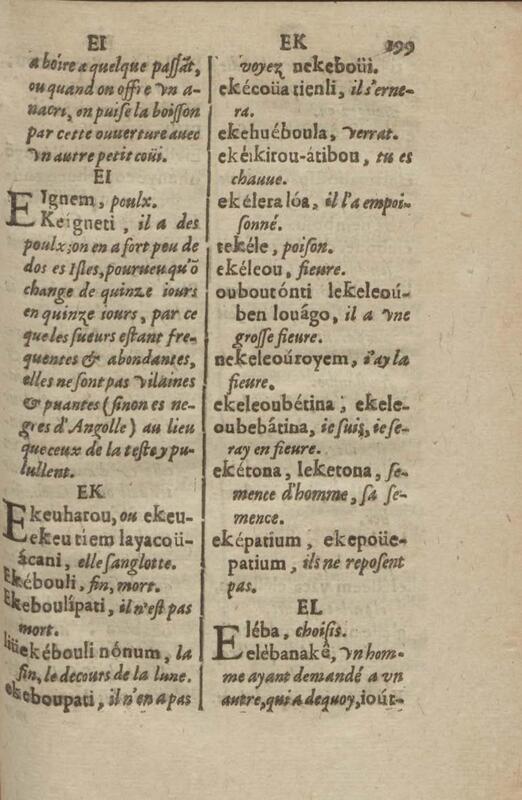 EI
a boire a quelque passāt,
ou quand on offre vn a-
nacri, on puise la boisson
par cette ouuerture auec
vn autre petit coüi.
EI
EIgnem, poulx.
Keigneti, il a des
poulx; on en a fort peu de
dos es Isles, pourueu qu'ō
change de quinze iours
en quinze iours, par ce
que les sueurs estant fre-
quentes & abondantes,
elles ne sont pas vilaines
& puantes (sinon es ne-
gres d'Angolle) au lieu
que ceux de la teste y pu-
lullent.
EK
Ekeuharou, ou ekeu-
ekeu tiem layacoü-
ácani, elle sanglotte.
Ekébouli, fin, mort.
Ekeboulípati, il n'est pas
mort.
ekébouli nónum, la
fin, le decours de la lune.
ekeboupati, il n'en a pas
EK 199
voyez nekeboüi.
ekécoüa tienli, il s'erne-
ra.
ekehuéboula, verrat.
ekéikirou-átibou, tu es
chauue.
ekélera lóa, il l'a empoi-
sonné.
tekéle, poison.
ekéleou, fieure.
ouboutónti lekeleoú-
ben louágo, il a vne
grosse fieure.
nekeleoúroyem, i'ay la
fieure.
ekeleoubétina, ekele-
oubebátina, ie suis, ie se-
ray en fieure.
ekétona, leketona, se-
mence d'homme, sa se-
mence.
eképatium, ekepoüe-
patium, ils ne reposent
pas.
EL
Eléba, choisis.
elébanakê, vn hom-
me ayant demandé a vn
autre, qui a dequoy, ioút-